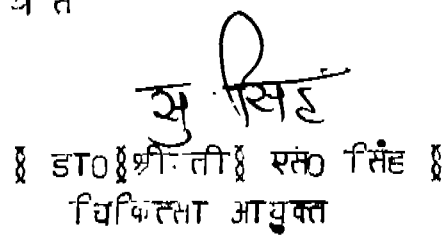 सु सिंह
( डा0 (श्रीमती) एस0 सिंह )
चिकित्सा आयुक्त